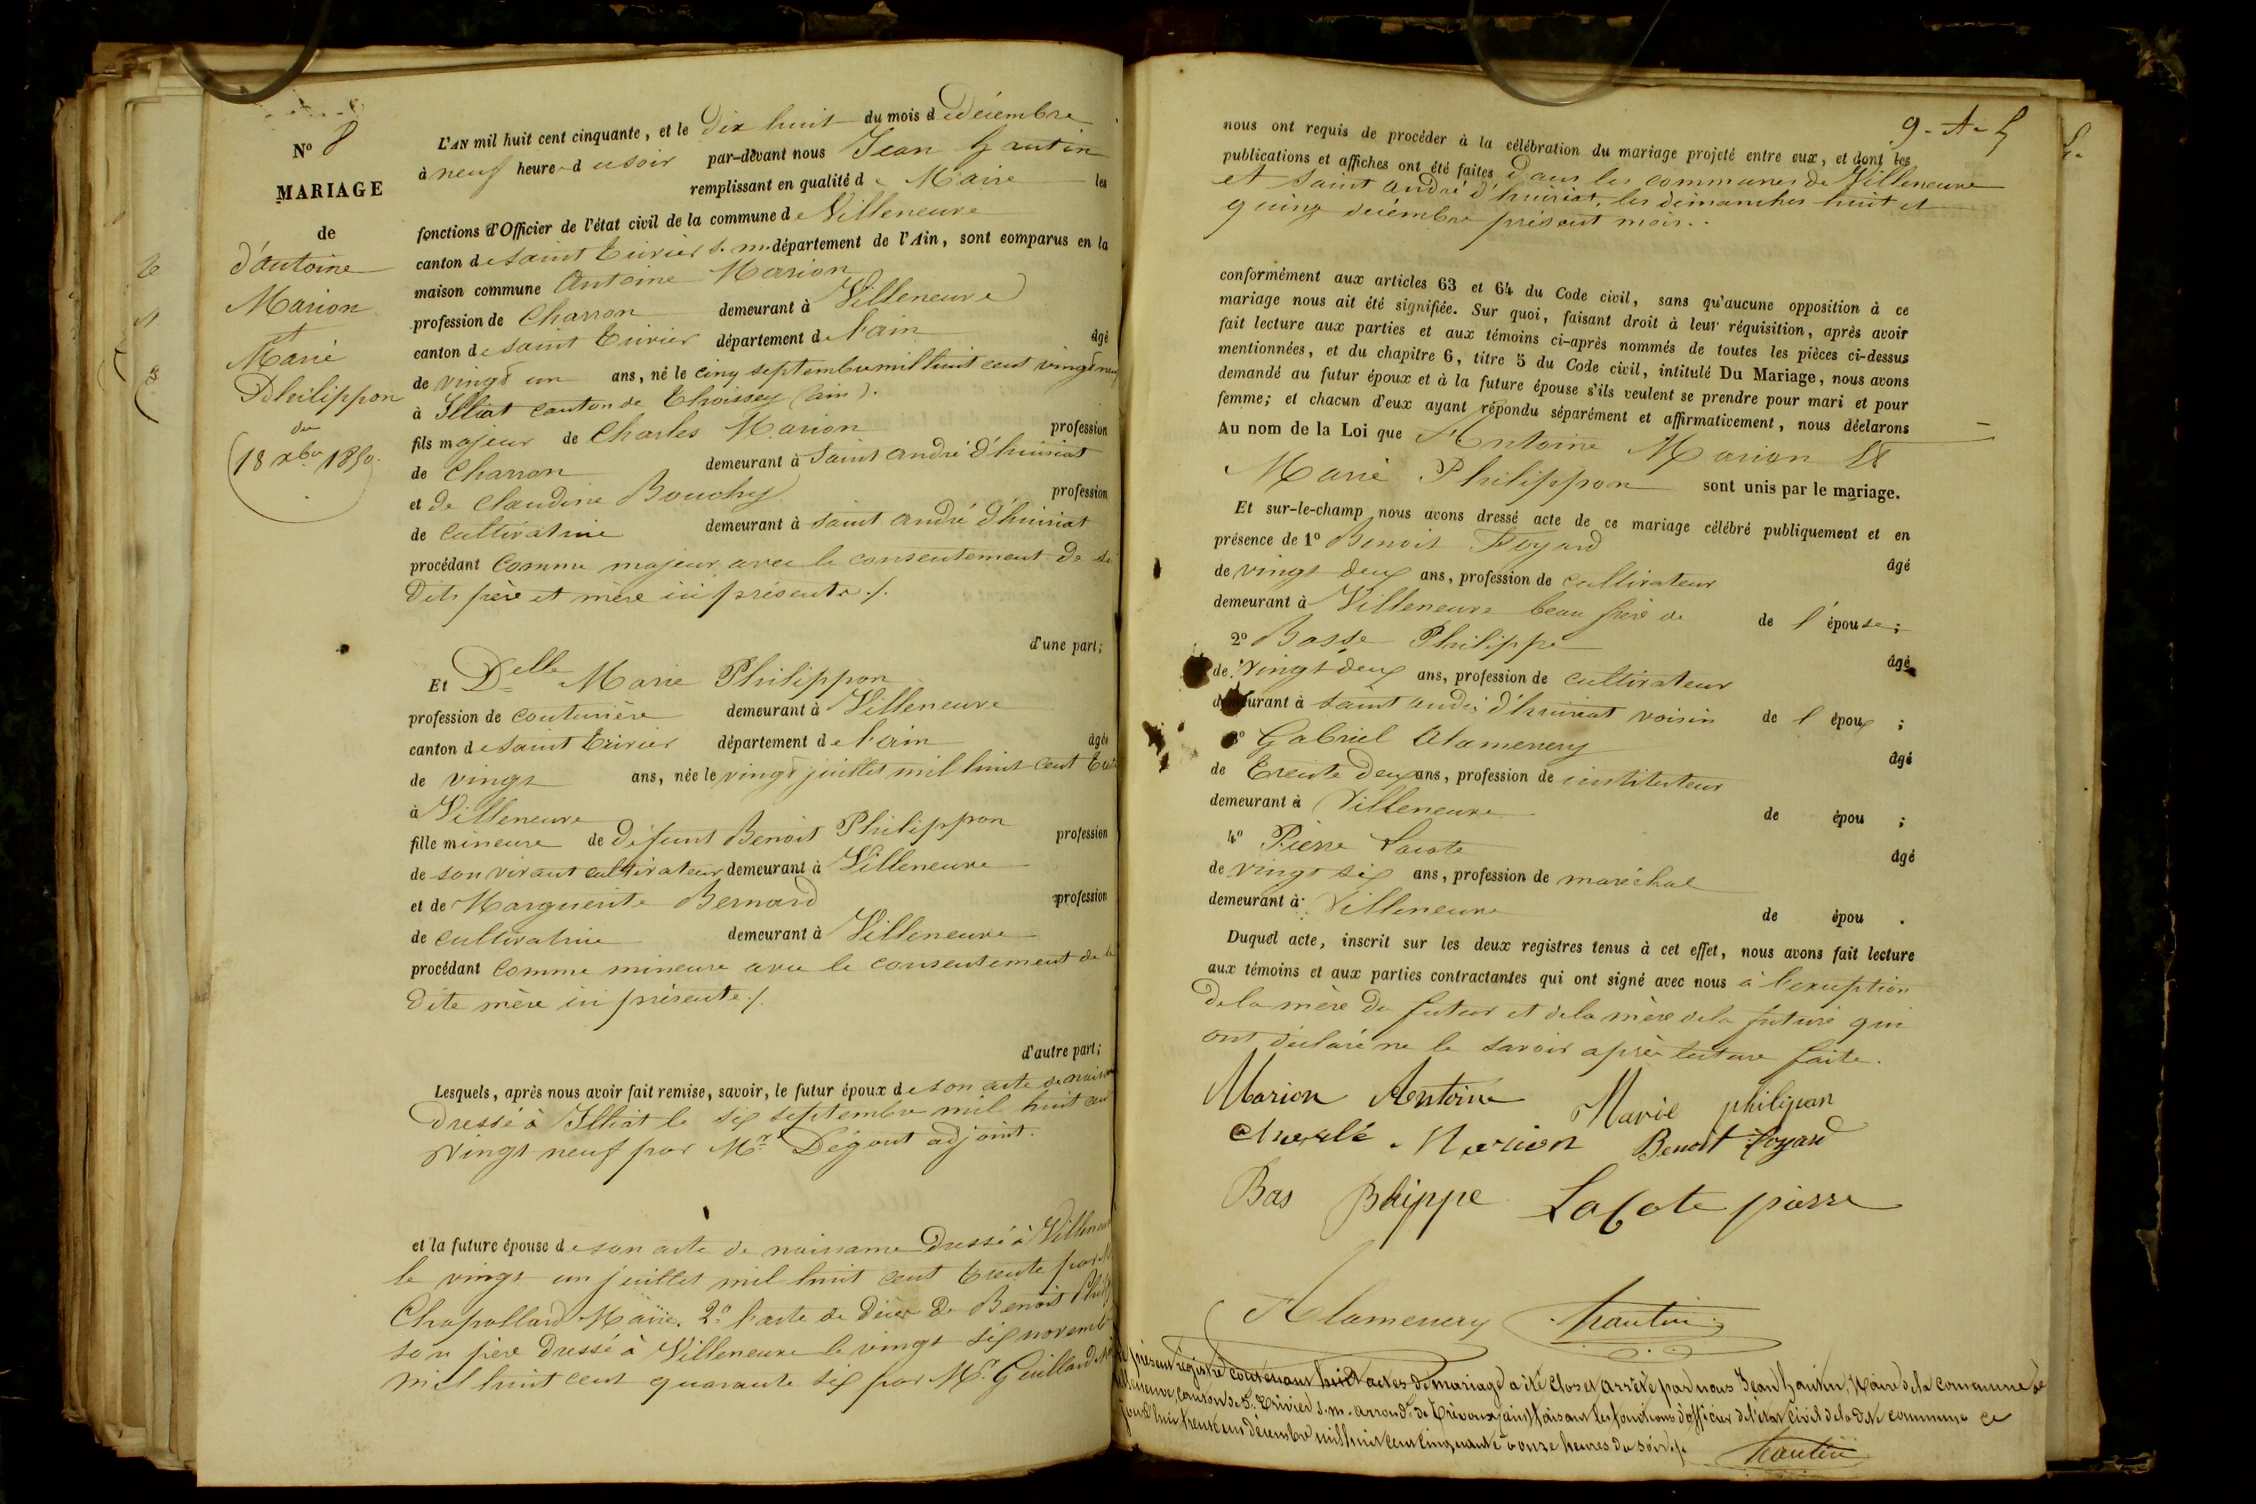 N° 8
MARIAGE
de
d'antoine
Marion
et
Marie
Philippon
du
18 xbre 1850.
L'AN mil huit cent cinquante, et le dix huit du mois de décembre
à neuf heure du soir par-devant nous Jean
remplissant en qualité de Maire les
fonctions d'Officier de l'état civil de la commune de Villeneuve
canton de saint Trivier s. m. département de l'Ain, sont comparus en la
maison commune Antoine Marion
profession de Charron demeurant à Villeneuve
canton de saint Trivier département de l'ain âgé
de vingt un ans, né le cinq septembre mil huit cent vingt neuf
à Illiat canton de Thoissey (ain).
fils majeur de Charles Marion profession
de Charron demeurant à Saint andré d'huiriat
et de Claudine Bouchy profession
de cultivatrice demeurant à saint andré d'huiriat
procédant comme majeur avec le consentement de
dits père et mère ici présents ./.
d'une part;
Et Delle Marie Philippon
profession de couturière demeurant à Villeneuve
canton de saint Trivier département de l'ain âgée
de vingt ans, née le vingt juillet mil huit cent
à Villeneuve
fille mineure de défunt Benoit Philippon profession
de son vivant cultivateur demeurant à Villeneuve
et de Marguerite Bernard profession
de cultivatrice demeurant à Villeneuve
procédant comme mineure avec le consentement de
dite mère ici présente ./.
d'autre part;
Lesquels, après nous avoir fait remise, savoir, le futur époux de son acte de
dressé à Illiat le six septembre mil huit cent
vingt neuf par Mr. Dégout adjoint.
et la future épouse de son acte de naissance dressé à
le vingt un juillet mil huit cent trente par
Chapolland Maire. 2° l'acte de décès de Benoit
son père dressé à Villeneuve le vingt six
mil huit cent quarante six par Mr. Guillard
9. A. L
nous ont requis de procéder à la célébration du mariage projeté entre eux, et dont les
publications et affiches ont été faites dans les communes de Villeneuve
et saint andré d'huiriat, les dimanches huit et
quinze décembre présent mois..
conformément aux articles 63 et 64 du Code civil, sans qu'aucune opposition à ce
mariage nous ait été signifiée. Sur quoi, faisant droit à leur réquisition, après avoir
fait lecture aux parties et aux témoins ci-après nommés de toutes les pièces ci-dessus
mentionnées, et du chapitre 6, titre 5 du Code civil, intitulé Du Mariage, nous avons
demandé au futur époux et à la future épouse s'ils veulent se prendre pour mari et pour
femme; et chacun d'eux ayant répondu séparément et affirmativement, nous déclarons
Au nom de la Loi que Antoine Marion Et
Marie Philippon sont unis par le mariage.
Et sur-le-champ nous avons dressé acte de ce mariage célébré publiquement et en
présence de 1° Benoit Foyard âgé
de vingt deux ans, profession de cultivateur
demeurant à Villeneuve beau frère de de l'épouse;
2° Basse Philippe âgé
de vingt deux ans, profession de cultivateur
demeurant à saint andré d'huiriat voisin de l'époux ;
3° Gabriel Alamercery âgé
de trente deux ans, profession de instituteur
demeurant à Villeneuve de épou ;
4° Pierre Lacote âgé
de vingt six ans, profession de maréchal
demeurant à Villeneuve de épou .
Duquel acte, inscrit sur les deux registres tenus à cet effet, nous avons fait lecture
aux témoins et aux parties contractantes qui ont signé avec nous à l'exception
de la mère du futur et de la mère de la future qui
ont déclaré ne le savoir après lecture faite.
Marion Antoine Marie philipon
Marion Benoit foyard
Bas Lacote pierre
Alamercery
Le présent registre contenant huit actes de mariage a été clos et arrêté par nous Jean hautin, Maire de la commune de
Villeneuve, canton de St. Trivier s. m. arrondt. de Trévoux (ain) faisant les fonctions d'officier de l'état civil de la dite commune ce
jourd'hui trente un décembre mil huit cent cinquante à onze heures du soir ./.
hautin